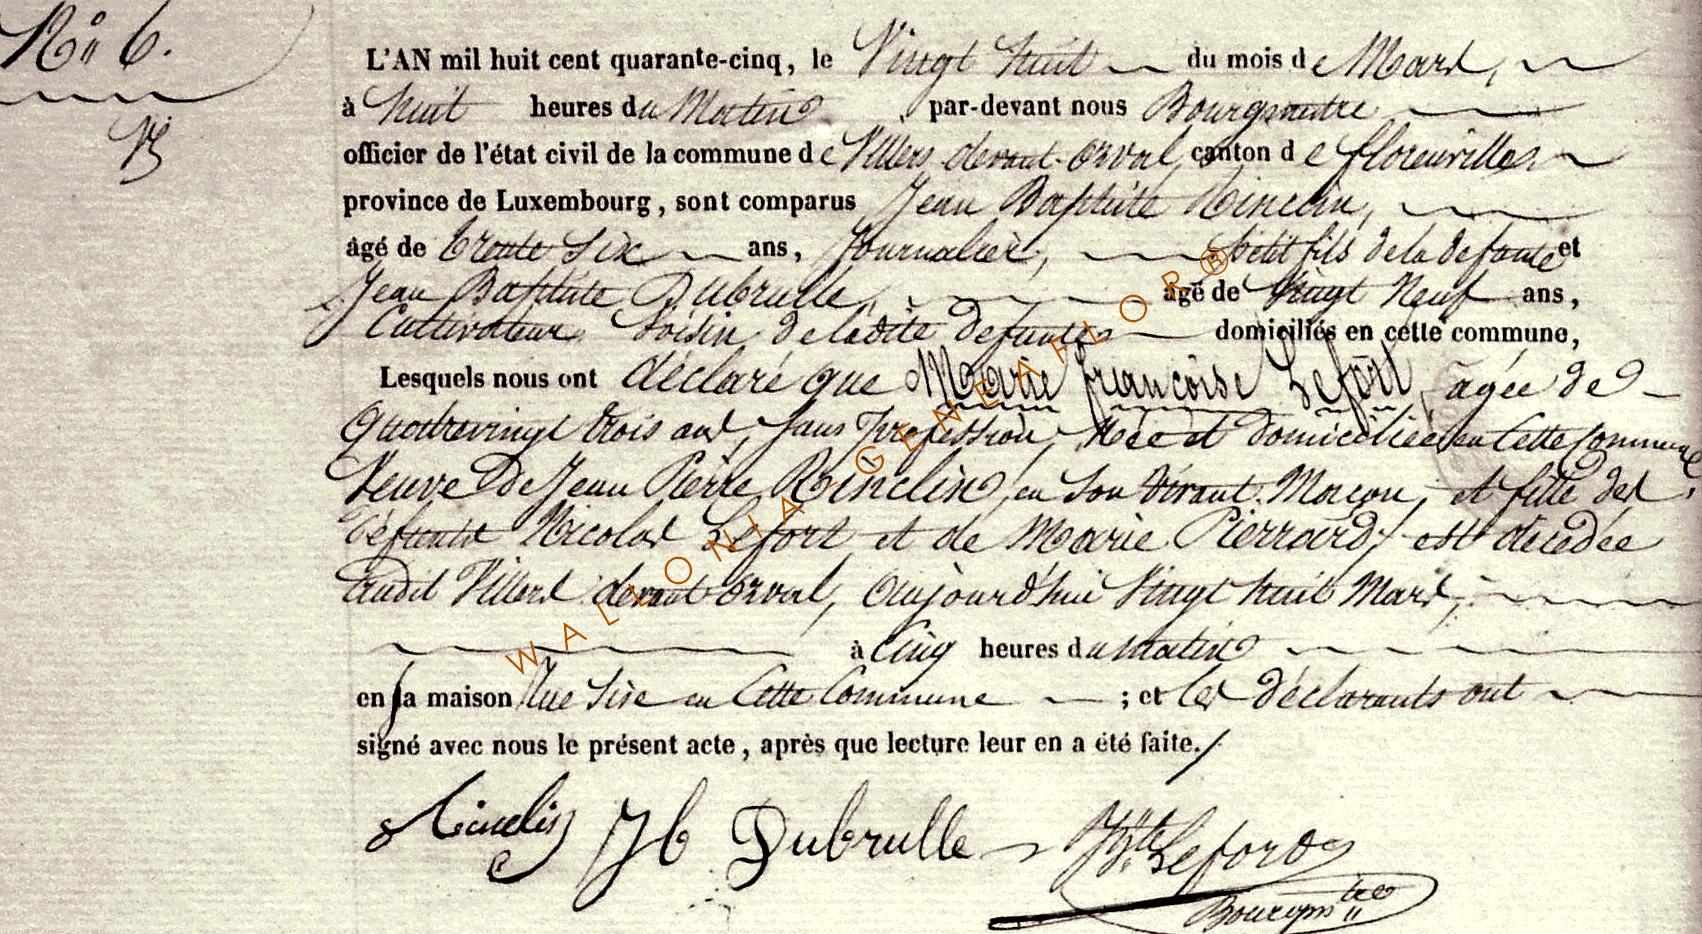 N° 6.
L'AN mil huit cent quarante-cinq, le Vingt huit du mois de Mars,
à huit heures du Matin par-devant nous Bourgmetre
officier de l'état civil de la commune de Villers devant-Orval, canton de florenville
province de Luxembourg, sont comparus Jean Baptiste Rinclin,
âgé de trente Six ans, Journalier, petit fils de la defunte et
Jean Baptiste Dubrulle, âgé de Vingt Neuf ans,
Cultivateur Voisin de ladite defunte domiciliés en cette commune,
Lesquels nous ont déclaré que Marie françoise Lefort, agée de
Quatrevingt trois ans, sans Profession, Née et domiciliée en Cette Commune
Veuve de Jean Pierre Rinclin, en Son Vivant Maçon, et fille des
Défunts Nicolas Lefort et de Marie Pierrard, est décédée
audit Villers devant Orval, Aujourd'hui Vingt huit Mars,
à Cinq heures du matin
en sa maison Rue Sise en Cette Commune ; et les déclarants ont
signé avec nous le présent acte, après que lecture leur en a été faite./
Rinclin JB Dubrulle Jbte Lefort
Bourgmtre
WALLONIA-GENEAFLOR®